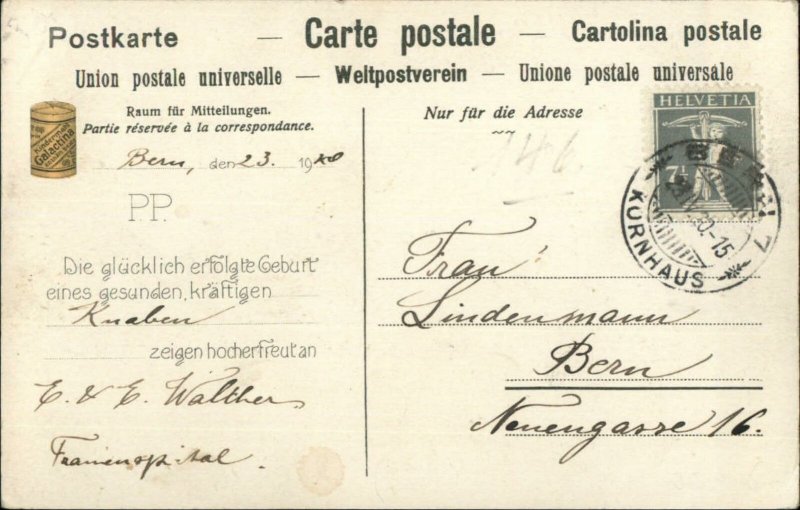 Postkarte — Carte postale — Cartolina postale
Union postale universelle — Weltpostverein — Unione postale universale
Galactina
Raum für Mitteilungen.
Partie réservée à la correspondance.
Bern, den 23. 19
P.P.
Die glücklich erfolgte Geburt
eines gesunden, kräftigen
Knaben
zeigen hocherfreut an
E. & E. Walther
Frauenspital.
Nur für die Adresse
146
HELVETIA
7½
BERN
KORNHAUS
Frau
Lindenmann
Bern
Neuengasse 16.